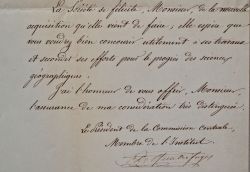 La Société se félicite, Monsieur, de la nouvelle
acquisition qu'elle vient de faire, elle espère que
vous voudrez bien concourir utilement à ses travaux
et seconder ses efforts pour le progrès des sciences
géographiques.
J'ai l'honneur de vous offrir, Monsieur,
l'assurance de ma considération très distinguée.
Le Président de la Commission Centrale,
Membre de l'Institut